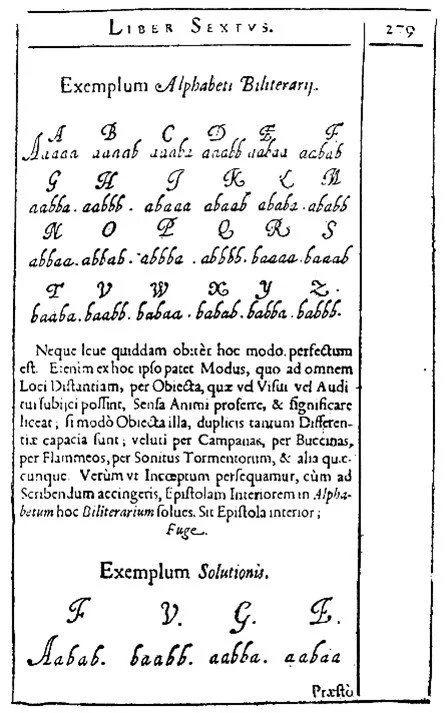 LIBER SEXTVS. 279
Exemplum Alphabeti Biliterarij.
A B C D E F
Aaaaa aaaab aaaba aaabb aabaa aabab
G H I K L M
aabba. aabbb. abaaa abaab ababa. ababb
N O P Q R S
abbaa. abbab. abbba. abbbb. baaaa. baaab
T V W X Y Z.
baaba. baabb. babaa. babab. babba. babbb.
Neque leue quiddam obitèr hoc modo perfectum
est. Etenim ex hoc ipso patet Modus, quo ad omnem
Loci Distantiam, per Obiecta, quæ vel Visui vel Audi
tui subijci possint, Sensa Animi proferre, & significare
liceat; si modò Obiecta illa, duplicis tantum Differen-
tiæ capacia sunt; veluti per Campanas, per Buccinas,
per Flammeos, per Sonitus Tormentorum, & alia quæ-
cunque. Verùm vt Incœptum persequamur, cùm ad
Scribendum accingeris, Epistolam Interiorem in Alpha-
betum hoc Biliterarium solues. Sit Epistola interior;
Fuge.
Exemplum Solutionis.
F V. G. E.
Aabab. baabb. aabba. aabaa
Præstò